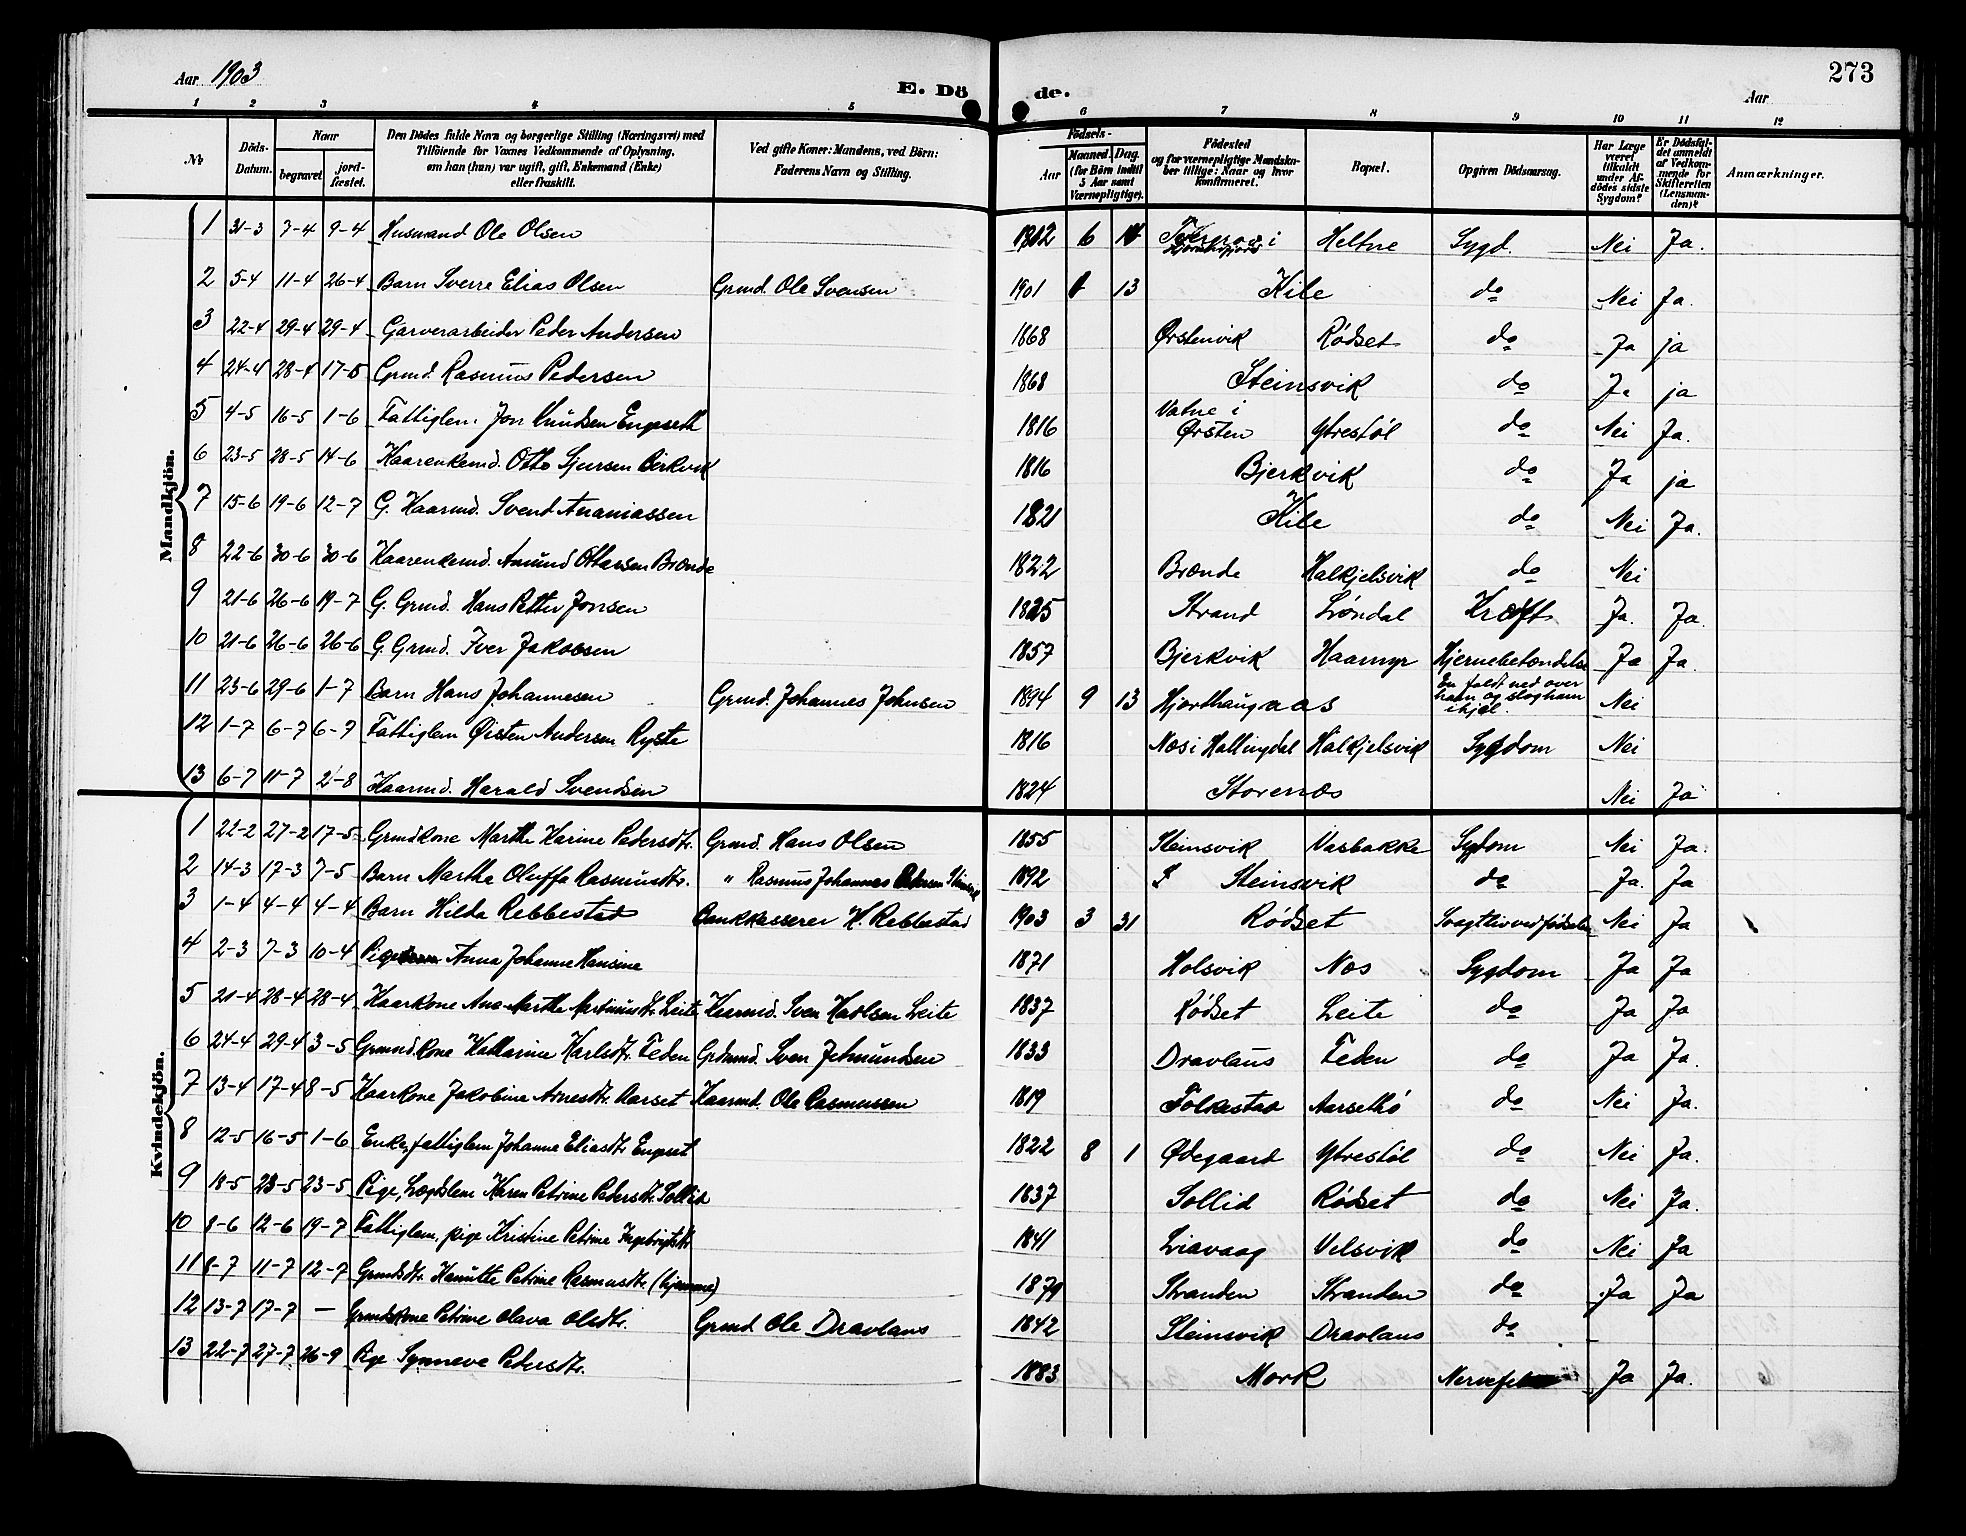 Aar 1903
E. Dö de.
273
Aar
1 2 3 4 5 6 7 8 9 10 11 12
No
Döds-Datum.
Naar
begravet
jord-fæstet.
Den Dödes fulde Navn og borgerlige Stilling (Næringsvei) med Tilföiende for Voxnes Vedkommende af Oplysning, om han (hun) var ugift, gift, Enkemand (Enke) eller fraskilt.
Ved gifte Koner: Mandens, ved Börn: Faderens Navn og Stilling.
Födsels-
Aar
Maaned. Dag.
(for Börn indtil 5 Aar samt Værnepligtige).
Födested og for værnepligtige Mandskaber tillige: Naar og hvor konfirmeret.
Bopæl.
Opgiven Dödsaarsag.
Har Læge været tilkaldt under Afdödes sidste Sygdom?
Er Dödsfaldet anmeldt af Vedkommende for Skifteretten (Lensmanden)?
Anmærkninger.
Mandkjön.
1 31-3 7-4 9-4 Husmand Ole Olsen 6 i Heltne Sygd. Nei Ja.
2 5-4 11-4 26-4 Barn Sverre Elias Olsen Grmd. Ole Svensen 1901 13 Kile do Nei Ja.
3 22-4 29-4 29-4 Garverarbeider Peder Andersen 1868 Ørstenvik Rødset do Ja ja
4 24-4 28-4 17-5 Grmd. Rasmus Pedersen 1868 Steinsvik do Ja ja
5 4-5 16-5 1-6 Fattiglem. Jon Knudsen Engeseth 1816 Vatne i Ørsten Ytrestøl do Nei Ja.
6 23-5 28-5 14-6 Kaarenkemd. Otto Sjursen Birkvik 1816 Bjerkvik do Ja ja
7 15-6 19-6 12-7 G. Kaarmd. Svend Ananiassen 1821 Kile do Nei Ja.
8 22-6 30-6 30-6 Kaarenkemd. Amund Ottarsen Brænde 1822 Brænde Halkjelsvik do Nei
9 21-6 26-6 19-7 G. Grmd. Hans Petter Jonsen 1825 Strand Løndal Kræft Ja. Ja.
10 21-6 26-6 26-6 G. Grmd. Iver Jakobsen 1857 Bjerkvik Haamyr Hjernebetændelse Ja Ja.
11 23-6 29-6 1-7 Barn Hans Johannesen Grmd. Johannes Johnsen 1894 9 13 Hjorthaugaas faldt ned over ham og slog ham ihjel. Nei
12 1-7 6-7 6-7 Fattiglem Øisten Andersen Ryste 1816 Næs i Hallingdal Halkjelsvik Sygdom Nei
13 6-7 11-7 2-8 Kaarmd. Harald Svendsen 1824 Storenæs Nei Ja
Kvindekjön.
1 22-2 27-2 17-5 Grmdkone Marthe Karine Pedersdtr. Grmd. Hans Olsen 1855 Steinsvik Vasbakke Sygdom Nei Ja.
2 14-3 17-3 7-5 Barn Martha Oluffa Rasmusdtr. " Rasmus Johannes Pedersen Steinsvik 1892 Steinsvik do Ja. Ja
3 1-4 4-4 4-4 Barn Hilda Rebbestad Bankkasserer H. Rebbestad 1903 3 31 Rødset Svagtlivvedfødselen Nei Ja
4 2-3 7-3 10-4 Pige Anna Johanne Hansine 1871 Holsvik Næs Sygdom Ja Ja
5 21-4 28-4 28-4 Kaarkone Ane Marthe Martinusdtr Leite Kaarmd. Sven Karlsen Leite 1837 Rødset Leite do Ja Ja
6 24-4 29-4 3-5 Grmndkone Katharine Karlsdtr. Feden Grdmnd. Sven Jetmundsen 1833 Dravlaus Feden do Ja Ja.
7 13-4 17-4 8-5 Kaarkone Jakobine Arnesdtr. Aarset Kaarmd. Ole Rasmussen 1819 Folkestad Aarsethø do Nei Ja.
8 12-5 16-5 1-6 Enke, fattiglem Johanne Eliasdtr Engeset 1822 8 1 Ødegaard Ytrestøl do Nei Ja.
9 18-5 23-5 23-5 Pige, Lægdslem Karen Petrine Pedersdtr. Sollid 1837 Sollid Rødset do Nei Ja.
10 8-6 12-6 19-7 Fattiglem, pige Kristine Petrine Ingebrigtsdtr 1841 Liavaag Velsvik do Nei Ja
11 8-7 11-7 12-7 Grmdsdtr. Petrine Rasmusdtr. (hjemme) 1879 Stranden Stranden do Ja Ja
12 13-7 17-7 — Grmdskone Petrine Olava Olsdtr. Grmd Ole Dravlaus 1842 Steinsvik Dravlaus do
13 22-7 27-7 26-9 Pige Synneve Pedersdtr. 1883 Mork Ja Ja.